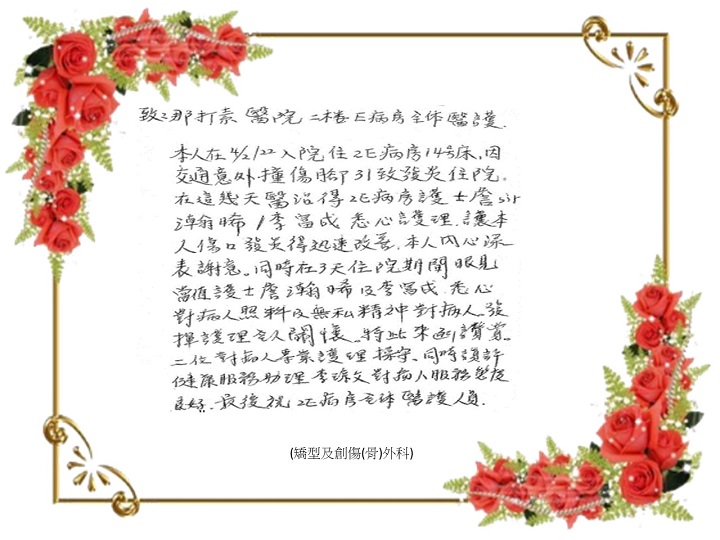 致:那打素醫院二樓E病房全体醫護.
本人在4/2/22入院住2E病房14号床,因
交通意外撞傷脚引致發炎住院。
在這幾天醫治得2E病房護士詹sir
瀚晞/李富成悉心護理.讓本
人傷口發炎得迅速改善.本人內心深
表謝意。同時在3天住院期間眼見
當值護士詹瀚晞及李富成.悉心
對病人照料及無私精神對病人.發
揮護理令人關懷。特此來函讚賞。
二位對病人專業護理操守.同時讚許
健康服務助理李琼文對病人服務態度
良好.最後祝2E病房全体醫護人員.
(矯型及創傷(骨)外科)